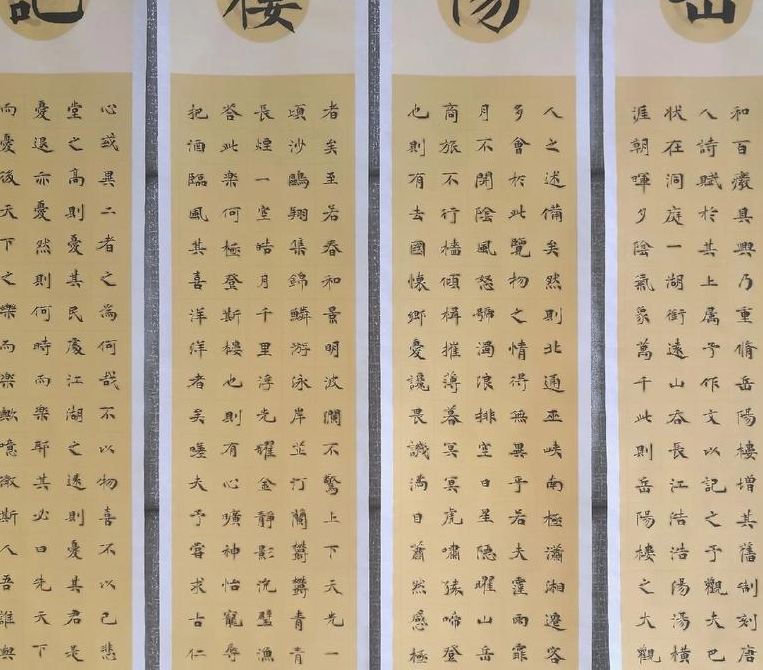 岳陽樓記
和百癈具興乃重脩岳陽樓增其舊制刻唐
人詩賦於其上属予作文以記之予觀夫巴
状在洞庭一湖銜遠山吞長江浩浩湯湯橫
涯朝暉夕陰氣象萬千此則岳陽樓之大觀
人之述備矣然則北通巫峽南極瀟湘遷客
多會於此覽物之情得無異乎若夫霪雨霏
月不開陰風怒號濁浪排空日星隱曜山岳
商旅不行檣傾楫摧薄暮冥冥虎嘯猿啼登
也則有去國懷鄉憂讒畏譏滿目蕭然感極
者矣至若春和景明波瀾不驚上下天光一
頃沙鷗翔集錦鱗游泳岸芷汀蘭鬱鬱青青
長煙一空皓月千里浮光耀金靜影沉璧漁
答此樂何極登斯樓也則有心曠神怡寵辱
把酒臨風其喜洋洋者矣嗟夫予嘗求古仁
心或異二者之為何哉不以物喜不以己悲
堂之高則憂其民處江湖之遠則憂其君是
憂退亦憂然則何時而樂耶其必曰先天下
而憂後天下之樂而樂歟噫微斯人吾誰與